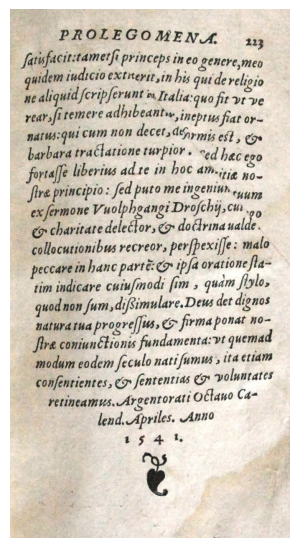 PROLEGOMENA. 223
satisfacit: tametsi princeps in eo genere, meo
quidem iudicio extiterit, in his qui de religio
ne aliquid scripserunt in Italia: quo fit vt ve
rear, si temere adhibeantur, ineptus fiat or-
natus: qui cum non decet, deformis est, &
barbara tractatione turpior. Sed hæc ego
fortasse liberius ad te in hoc amicitiæ no-
stræ principio: sed puto me ingenium tuum
ex sermone Vuolphgangi Droschij, cuius ego
& charitate delector, & doctrina ualde.
collocutionibus recreor, perspexisse: malo
peccare in hanc partẽ: & ipsa oratione sta-
tim indicare cuiusmodi sim, quàm stylo,
quod non sum, dissimulare. Deus det dignos
natura tua progressus, & firma ponat no-
stræ coniunctionis fundamenta: vt quemad
modum eodem seculo nati sumus, ita etiam
consentientes, & sententias & voluntates
retineamus. Argentorati Octauo Ca-
lend. Apriles. Anno
1541.